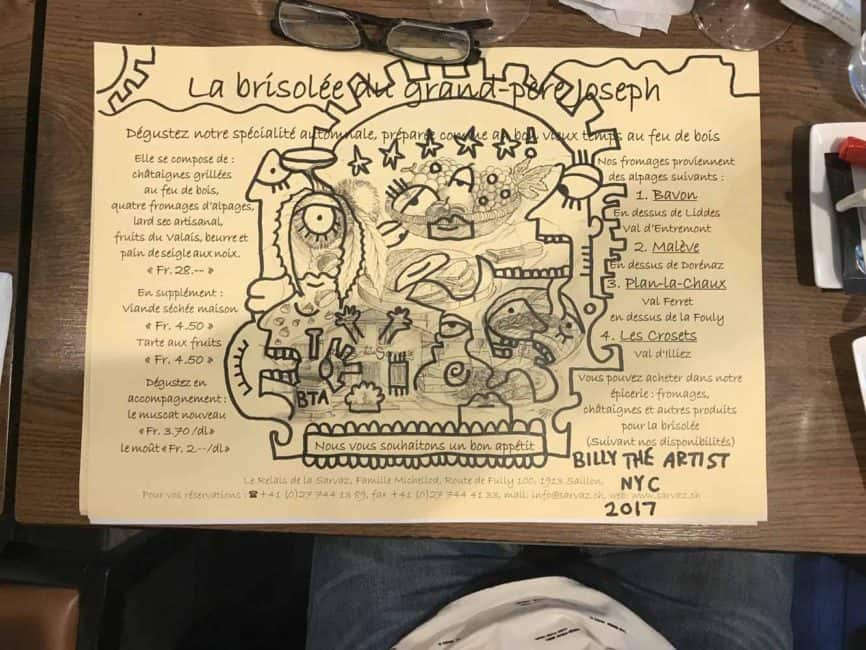 La brisolée du grand-père Joseph
Dégustez notre spécialité automnale, préparée comme au bon vieux temps au feu de bois
Elle se compose de :
châtaignes grillées
au feu de bois,
quatre fromages d'alpages,
lard sec artisanal,
fruits du Valais, beurre et
pain de seigle aux noix.
« Fr. 28.-- »
En supplément :
Viande séchée maison
« Fr. 4.50 »
Tarte aux fruits
« Fr. 4.50 »
Dégustez en
accompagnement :
le muscat nouveau
« Fr. 3.70 /dl »
le moût « Fr. 2.-- /dl »
Nos fromages proviennent
des alpages suivants :
1. Bavon
En dessus de Liddes
Val d'Entremont
2. Malève
En dessus de Dorénaz
3. Plan-la-Chaux
Val Ferret
en dessus de la Fouly
4. Les Crosets
Val d'Illiez
Vous pouvez acheter dans notre
épicerie : fromages,
châtaignes et autres produits
pour la brisolée
(Suivant nos disponibilités)
BTA
Nous vous souhaitons un bon appétit
BILLY THE ARTIST
NYC
2017
Le Relais de la Sarvaz, Famille Michellod, Route de Fully 100, 1913 Saillon,
Pour vos réservations : ☎ +41 (0)27 744 13 89, fax +41 (0)27 744 41 33, mail: info@sarvaz.ch, web: www.sarvaz.ch